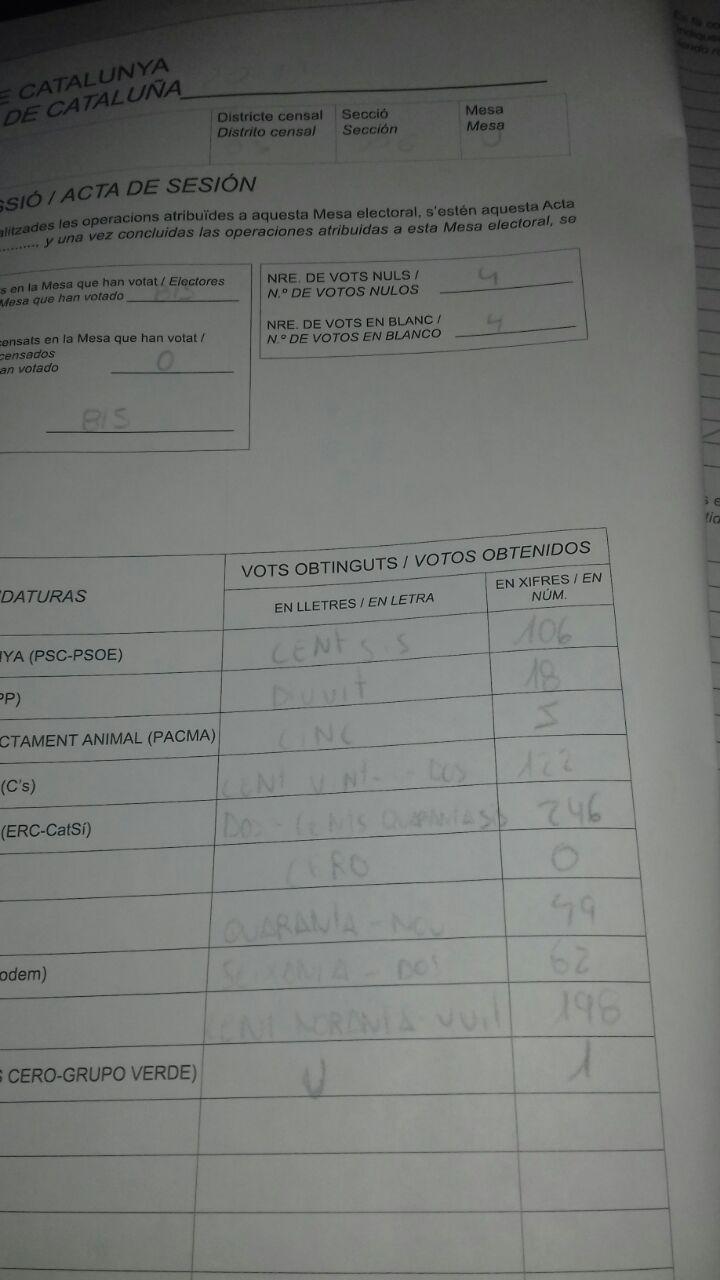 E CATALUNYA
DE CATALUÑA
Districte censal Secció Mesa
Distrito censal Sección Mesa
SSIÓ / ACTA DE SESIÓN
alitzades les operacions atribuïdes a aquesta Mesa electoral, s'estén aquesta Acta
.........., y una vez concluidas las operaciones atribuidas a esta Mesa electoral, se
s en la Mesa que han votat / Electores
Mesa que han votado 815
NRE. DE VOTS NULS / 4
N.º DE VOTOS NULOS
NRE. DE VOTS EN BLANC / 4
N.º DE VOTOS EN BLANCO
censats en la Mesa que han votat /
censados
an votado 0
815
DATURAS
VOTS OBTINGUTS / VOTOS OBTENIDOS
EN LLETRES / EN LETRA
EN XIFRES / EN
NÚM.
NYA (PSC-PSOE) CENT SIS 106
PP) DIVUIT 18
CTAMENT ANIMAL (PACMA) CINC 5
(C's) CENT VINT-I-DOS 122
(ERC-CatSí) DOS-CENTS QUARANTA SIS 246
CERO 0
QUARANTA-NOU 49
odem) SEIXANTA-DOS 62
CENT NORANTA-VUIT 198
S CERO-GRUPO VERDE) U 1